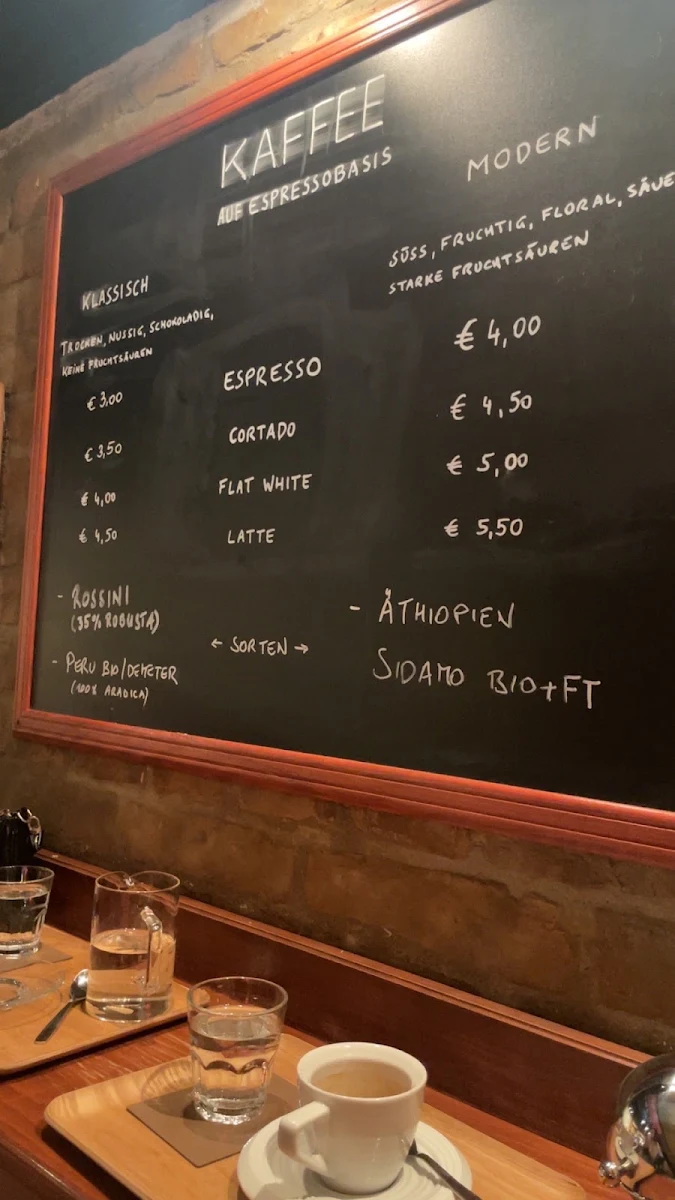 KAFFEE
AUF ESPRESSOBASIS
KLASSISCH
TROCKEN, NUSSIG, SCHOKOLADIG,
KEINE FRUCHTSÄUREN
MODERN
SÜSS, FRUCHTIG, FLORAL,
STARKE FRUCHTSÄUREN
€ 3,00 ESPRESSO € 4,00
€ 3,50 CORTADO € 4,50
€ 4,00 FLAT WHITE € 5,00
€ 4,50 LATTE € 5,50
- ROSSINI
(35% ROBUSTA)
- PERU BIO/DEMETER
(100% ARABICA)
← SORTEN →
- ÄTHIOPIEN
SIDAMO BIO+FT